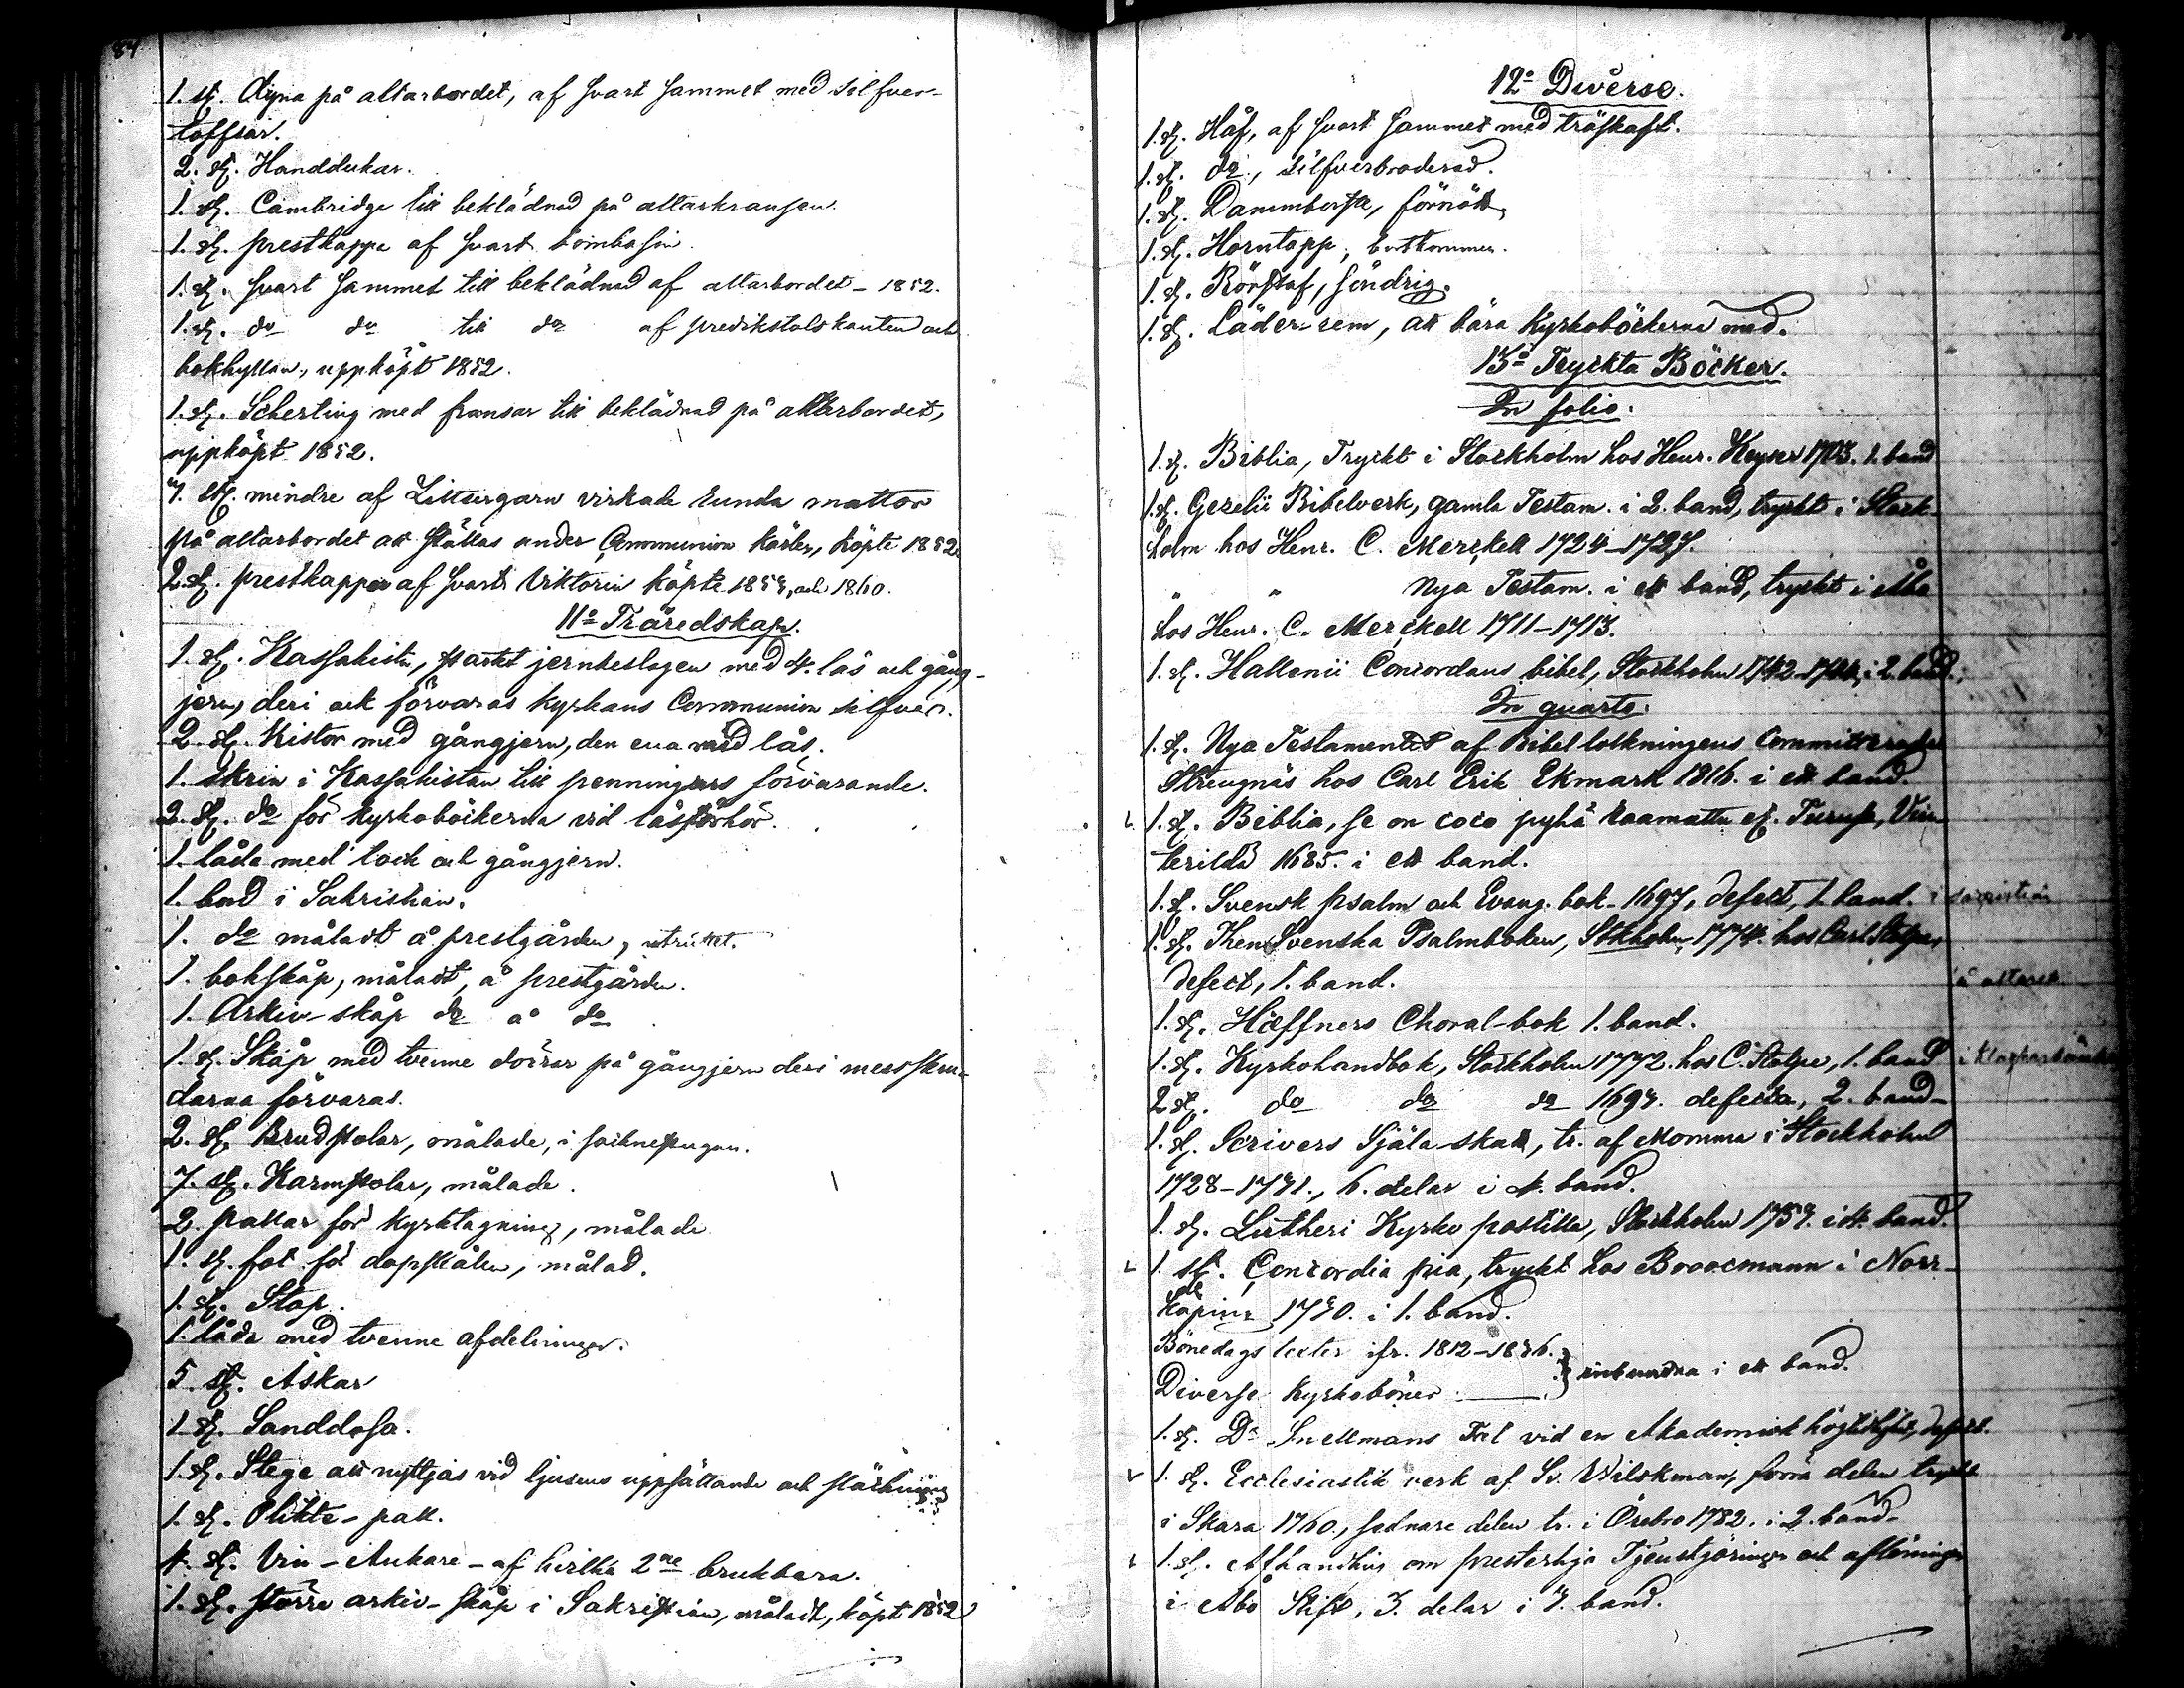 84
1. st. Dyna på altarbordet, af svart sammet med silfver-
toffsar.
2. st. Handdukar.
1. st. Cambridge till beklädnad på altarkransen.
1. st. prestkappa af svart bombasin.
1. st. svart sammet till beklädnad af altarbordet - 1852.
1. st. do do till do af predikstolskanten och
bokhyllan, uppköpt 1852.
1. st. Scherting med fransar till beklädnad på altarbordet,
uppköpt 1852.
st. mindre af Zittergarn virkade runda mattor
på altarbordet att ställas under Communion kärlen, köpte 1852.
2 st. prestkappor af svart Viktorin köpte 1859, och 1860.
11o Träredskap.
1. st. Kassakista, starkt jernbeslagen med 4. lås och gång-
jern, deri ock förvaras kyrkans Communion silfver.
2. st. Kistor med gångjern, den ena med lås.
1. skrin i Kassakistan till penningars förvarande.
2. st. do för kyrkoböckerna vid läsförhör.
1. låda med lock och gångjern.
1. bord i Sakristian.
1. do måladt å prestgården, utslitet.
1. bokskåp, måladt, å prestgården.
1. Arkiv-skåp do å do
1. st. Skåp med tvenne dörrar på gångjern deri messskru-
darna förvaras.
2. st. Brudstolar, målade, i sockenstugan.
7. st. Karmstolar, målade.
2. pallar för kyrktagning, målade
1. st. fot för dopskålen, målad.
1. st. Stop.
1. låda med tvenne afdelningar.
5. st. Askar
1. st. Sanddosa.
1. st. Stege att nyttjas vid ljusens uppsättande och släckning
1. st. Plikte-pall.
4. st. Vin-Ankare - af hvilka 2ne brukbara.
1. st. större arkiv-skåp i Sakristian, måladt, köpt 1852
12o Diverse.
1. st. Håf, af svart sammet med träskaft.
1. st. do, silfverbroderad.
1. st. Dammborste, förnött,
1. st. Horntapp, bortkommen.
1. st. Rörstaf, söndrig.
1. st. Läder-rem, att bära kyrkoböckerna med.
13o Tryckta Böcker.
In folio.
1. st. Biblia, Tryckt i Stockholm hos Henr. Keyser 1703. 1. band
1. st. Gezelii Bibelverk, gamla Testam. i 2. band, tryckt i Stock-
holm hos Henr. C. Merckell 1724-1727.
" " Nya Testam. i ett band, tryckt i Åbo
hos Henr. C. Merckell 1711-1713.
1. st. Hallenii Concordans bibel, Stockholm 1742-1744, i 2. band.
In quarto.
1. st. Nya Testamentet af Bibeltolkningens Committerade
Strengnäs hos Carl Erik Ekmark 1816. i ett band.
1. st. Biblia, se on coco pyhä raamattu Turusa,
terilda 1685. i ett band.
1. st. Svensk psalm och Evang. bok - 1697, defect, 1. band. i sacristian
1. st. Then Svenska Psalmboken, Stockholm 1774. hos Carl Stolpe,
defect, 1. band. å altaret
1. st. Hæffners Choral-bok 1. band.
1. st. Kyrkohandbok, Stockholm 1772. hos C. Stolpe, 1. band i klockarbänken
2 st. do do do defecta, 2. band -
1. st. Scrivers Själa-skatt, tr. af Momma i Stockholm
6. delar i 4. band.
1. st. Lutheri Kyrko postilla, Stockholm i 4. band.
1. st. Concordia pia, tryckt hos Broocmann i Norr-
köping i 1. band.
Bönedags texter ifr. } inbundna i ett band.
Diverse kyrkoböner
1. st. Dr Snellmans Tal vid en Akademisk högtidlighet, defect.
1. st. Ecclesiastik verk af Sv. Wilskman, förra delen tryckt
i Skara 1760, sednare delen tr. i Örebro 1782. i 2. band -
1. st. Afhandling om presterliga Tjenstgöringar och aflöningar
i Åbo Stift, 3. delar i band.